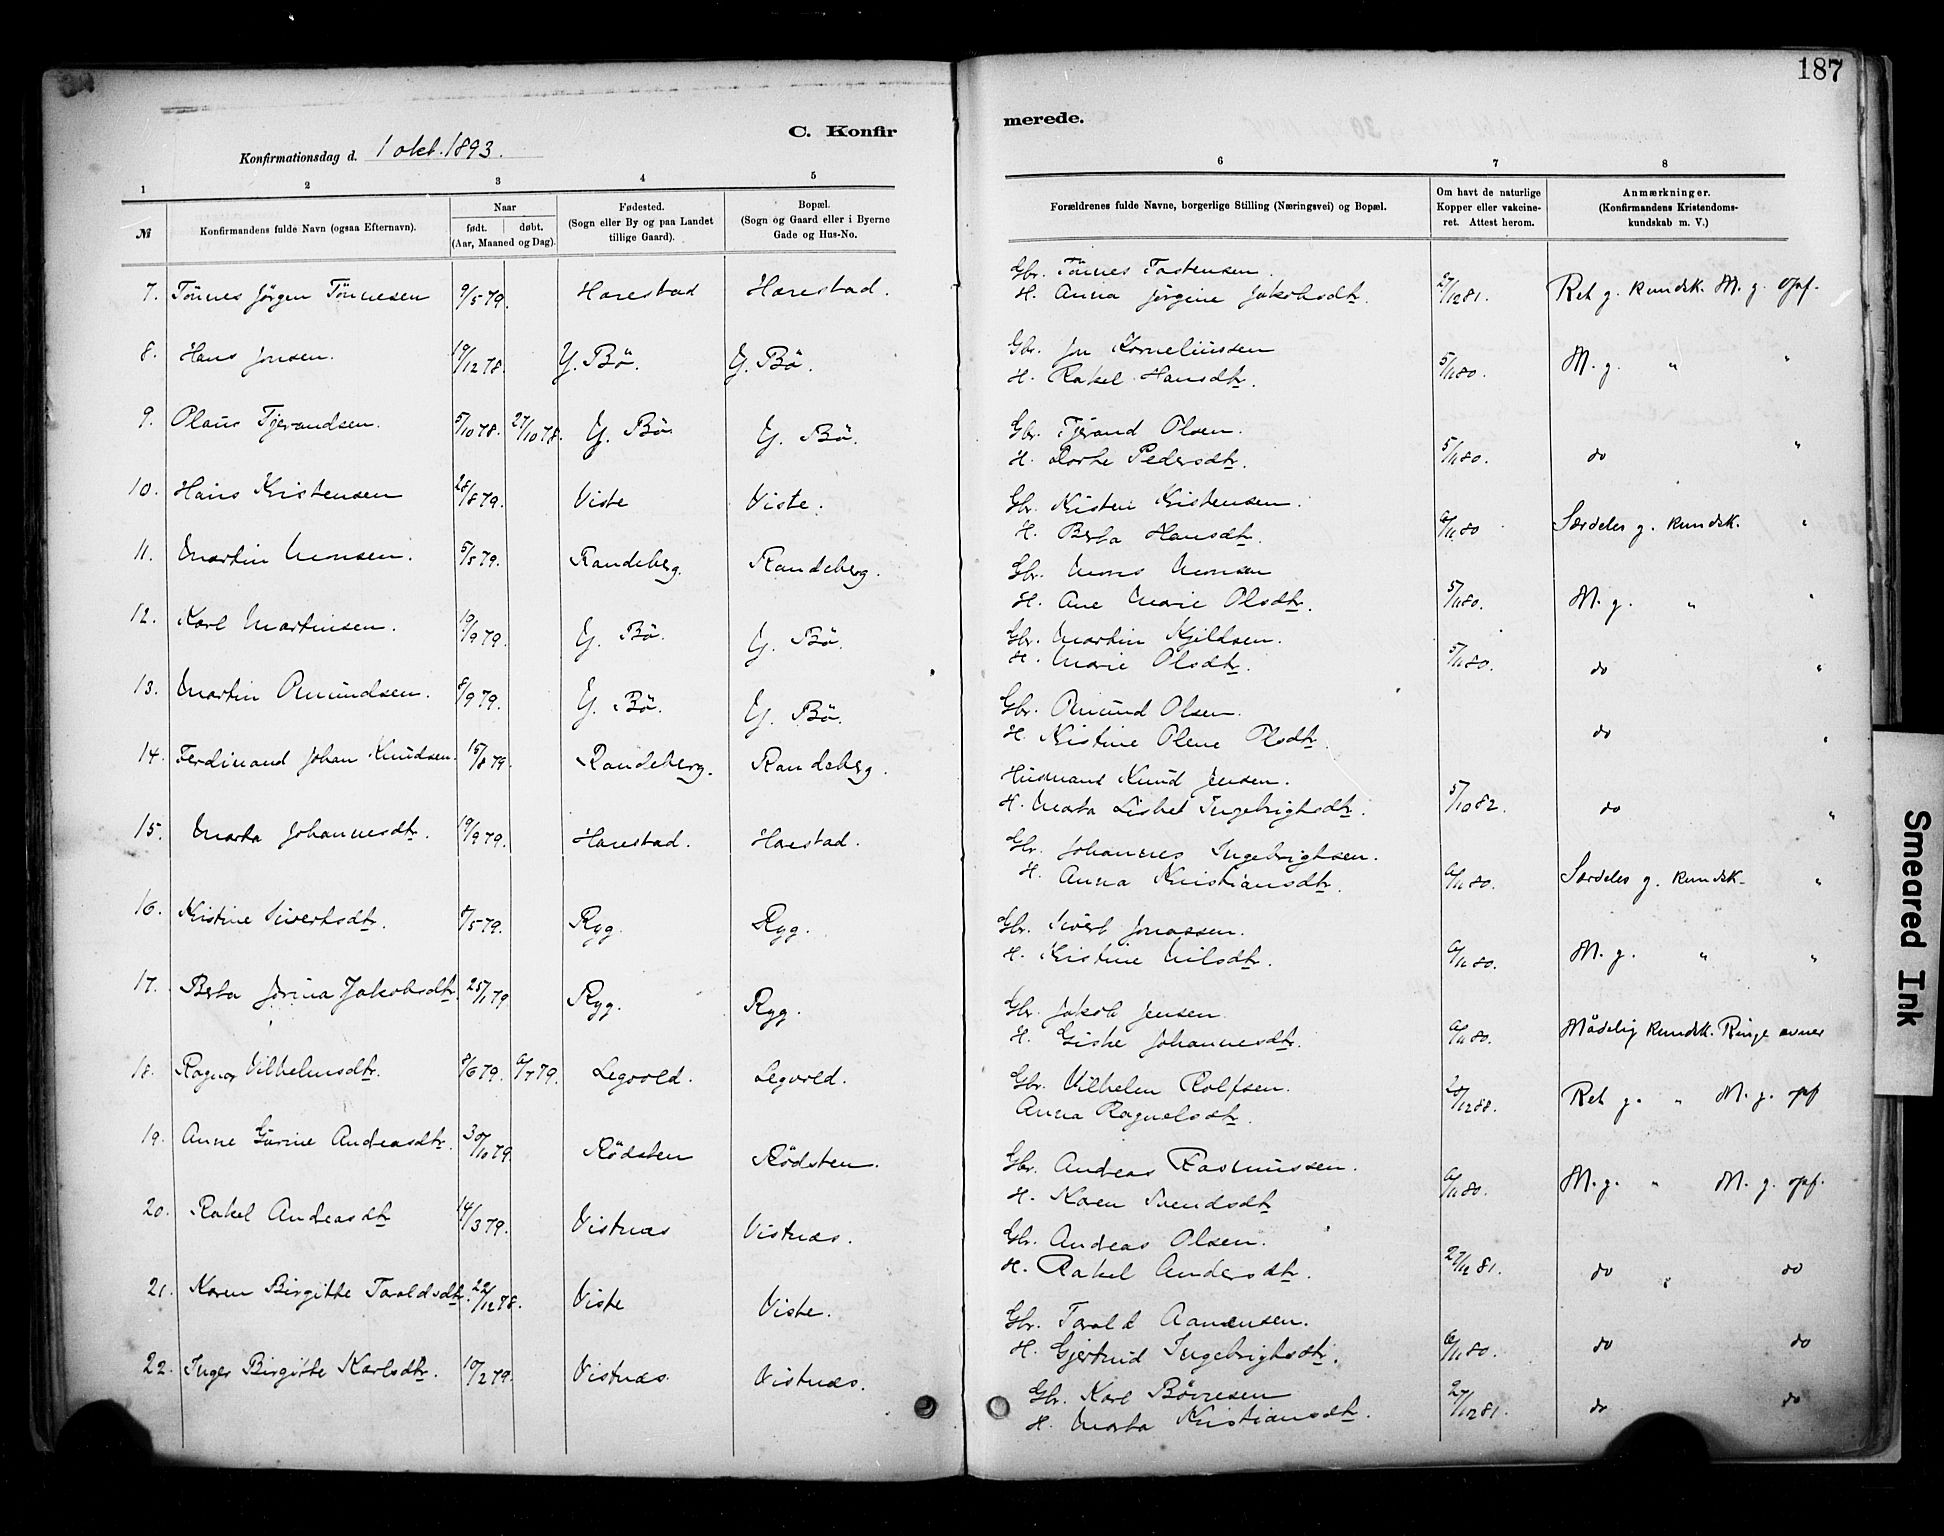 187
C. Konfirmerede.
Konfirmationsdag d. 1 okt. 1893.
1 2 3 4 5 6 7 8
№
Konfirmandens fulde Navn (ogsaa Efternavn).
Naar
født. døbt.
(Aar, Maaned og Dag).
Fødested.
(Sogn eller By og paa Landet
tillige Gaard).
Bopæl.
(Sogn og Gaard eller i Byerne
Gade og Hus-No.
Forældrenes fulde Navne, borgerlige Stilling (Næringsvei) og Bopæl.
Om havt de naturlige
Kopper eller vakcine-
ret. Attest herom.
Anmærkninger.
(Konfirmandens Kristendoms-
kundskab m. V.)
7. Tönnes Jörgen Tönnesen 9/5 79. Harestad Harestad. Gbr. Tönnes Tostensen. 27/12 81. Ret g. kundsk. M. g. opf.
H. Anna Jörgine Jakobsdtr.
8. Hans Jonsen. 19/12 78. Y. Bö. Y. Bö. Gbr. Jon Korneliussen 5/11 80. M. g. " "
H. Rakel Hansdtr.
9. Olaus Tjerandsen. 5/10 78. 27/10 78. Y. Bö. Y. Bö. Gbr. Tjerand Olsen. 5/11 80. do "
H. Dorte Pedersdtr.
10. Hans Kristensen 28/8 79. Viste Viste. Gbr. Kristen Kristensen. 6/11 80 Særdeles g. kundsk. "
H. Berta Hansdtr.
11. Martin Monsen. 5/8 79. Randeberg. Randeberg. Gbr. Mons Monsen 5/11 80. M. g. " "
H. Ane Marie Olsdtr.
12. Karl Martinsen. 19/9 79. Y. Bö. Y. Bö. Gbr. Martin Kjeldsen. 5/11 80. do "
H. Marie Olsdtr.
13. Martin Amundsen. 8/9 79. Y. Bö. Y. Bö. Gbr. Amund Olsen. do "
H. Kristine Olene Olsdtr.
14. Ferdinand Johan Knudsen. 15/8 79. Randeberg. Randeberg. Husmand Knud Jensen. 5/10 82. do "
H. Marta Lisbet Ingebrigtsdtr.
15. Marta Johannesdtr. 19/9 79. Harestad. Harestad. Gbr. Johannes Ingebrigtsen. 6/11 80. Særdeles g. kundsk. "
H. Anna Kristiansdtr.
16. Kristine Sivertsdtr. /5 79. Ryg. Ryg. Gbr. Sivert Jonassen. 6/11 80. M. g. " "
H. Kristine Nilsdtr.
17. Berta Jorina Jakobsdtr. 25/1 79 Ryg. Ryg. Gbr. Jakob Jensen. 6/11 80. Mådelig kundsk. Ringe evner
H. Giske Johannesdtr.
18. Ragna Vilhelmsdtr. 8/6 79. 6/7 79. Legvold. Legvold. Gbr. Vilhelm Rolfsen. 20/12 88. Ret g. " M. g. opf
Anna Ragnelsdtr.
19. Anne Gurine Andreasdtr. 30/10 79 Rödsten Rödsten. Gbr. Andreas Rasmussen. 6/11 80. M. g. " M. g. opf.
H. Karen Svendsdtr
20. Rakel Andreasdtr 14/3 79. Vistnæs Vistnæs. Gbr. Andreas Olsen. 27/12 81. do " do
H. Rakel Andersdtr.
21. Karen Birgitte Taraldsdtr. 22/12 78. Viste Viste. Gbr. Tarald Aanensen. 6/11 80. do do
H. Gjertrud Ingebrigtsdtr.
22. Inger Birgitte Karlsdtr. 10/2 79. Vistnæs Vistnæs. Gbr. Karl Börresen 27/12 81. do do
H. Marta Kristiansdtr.
Smeared Ink